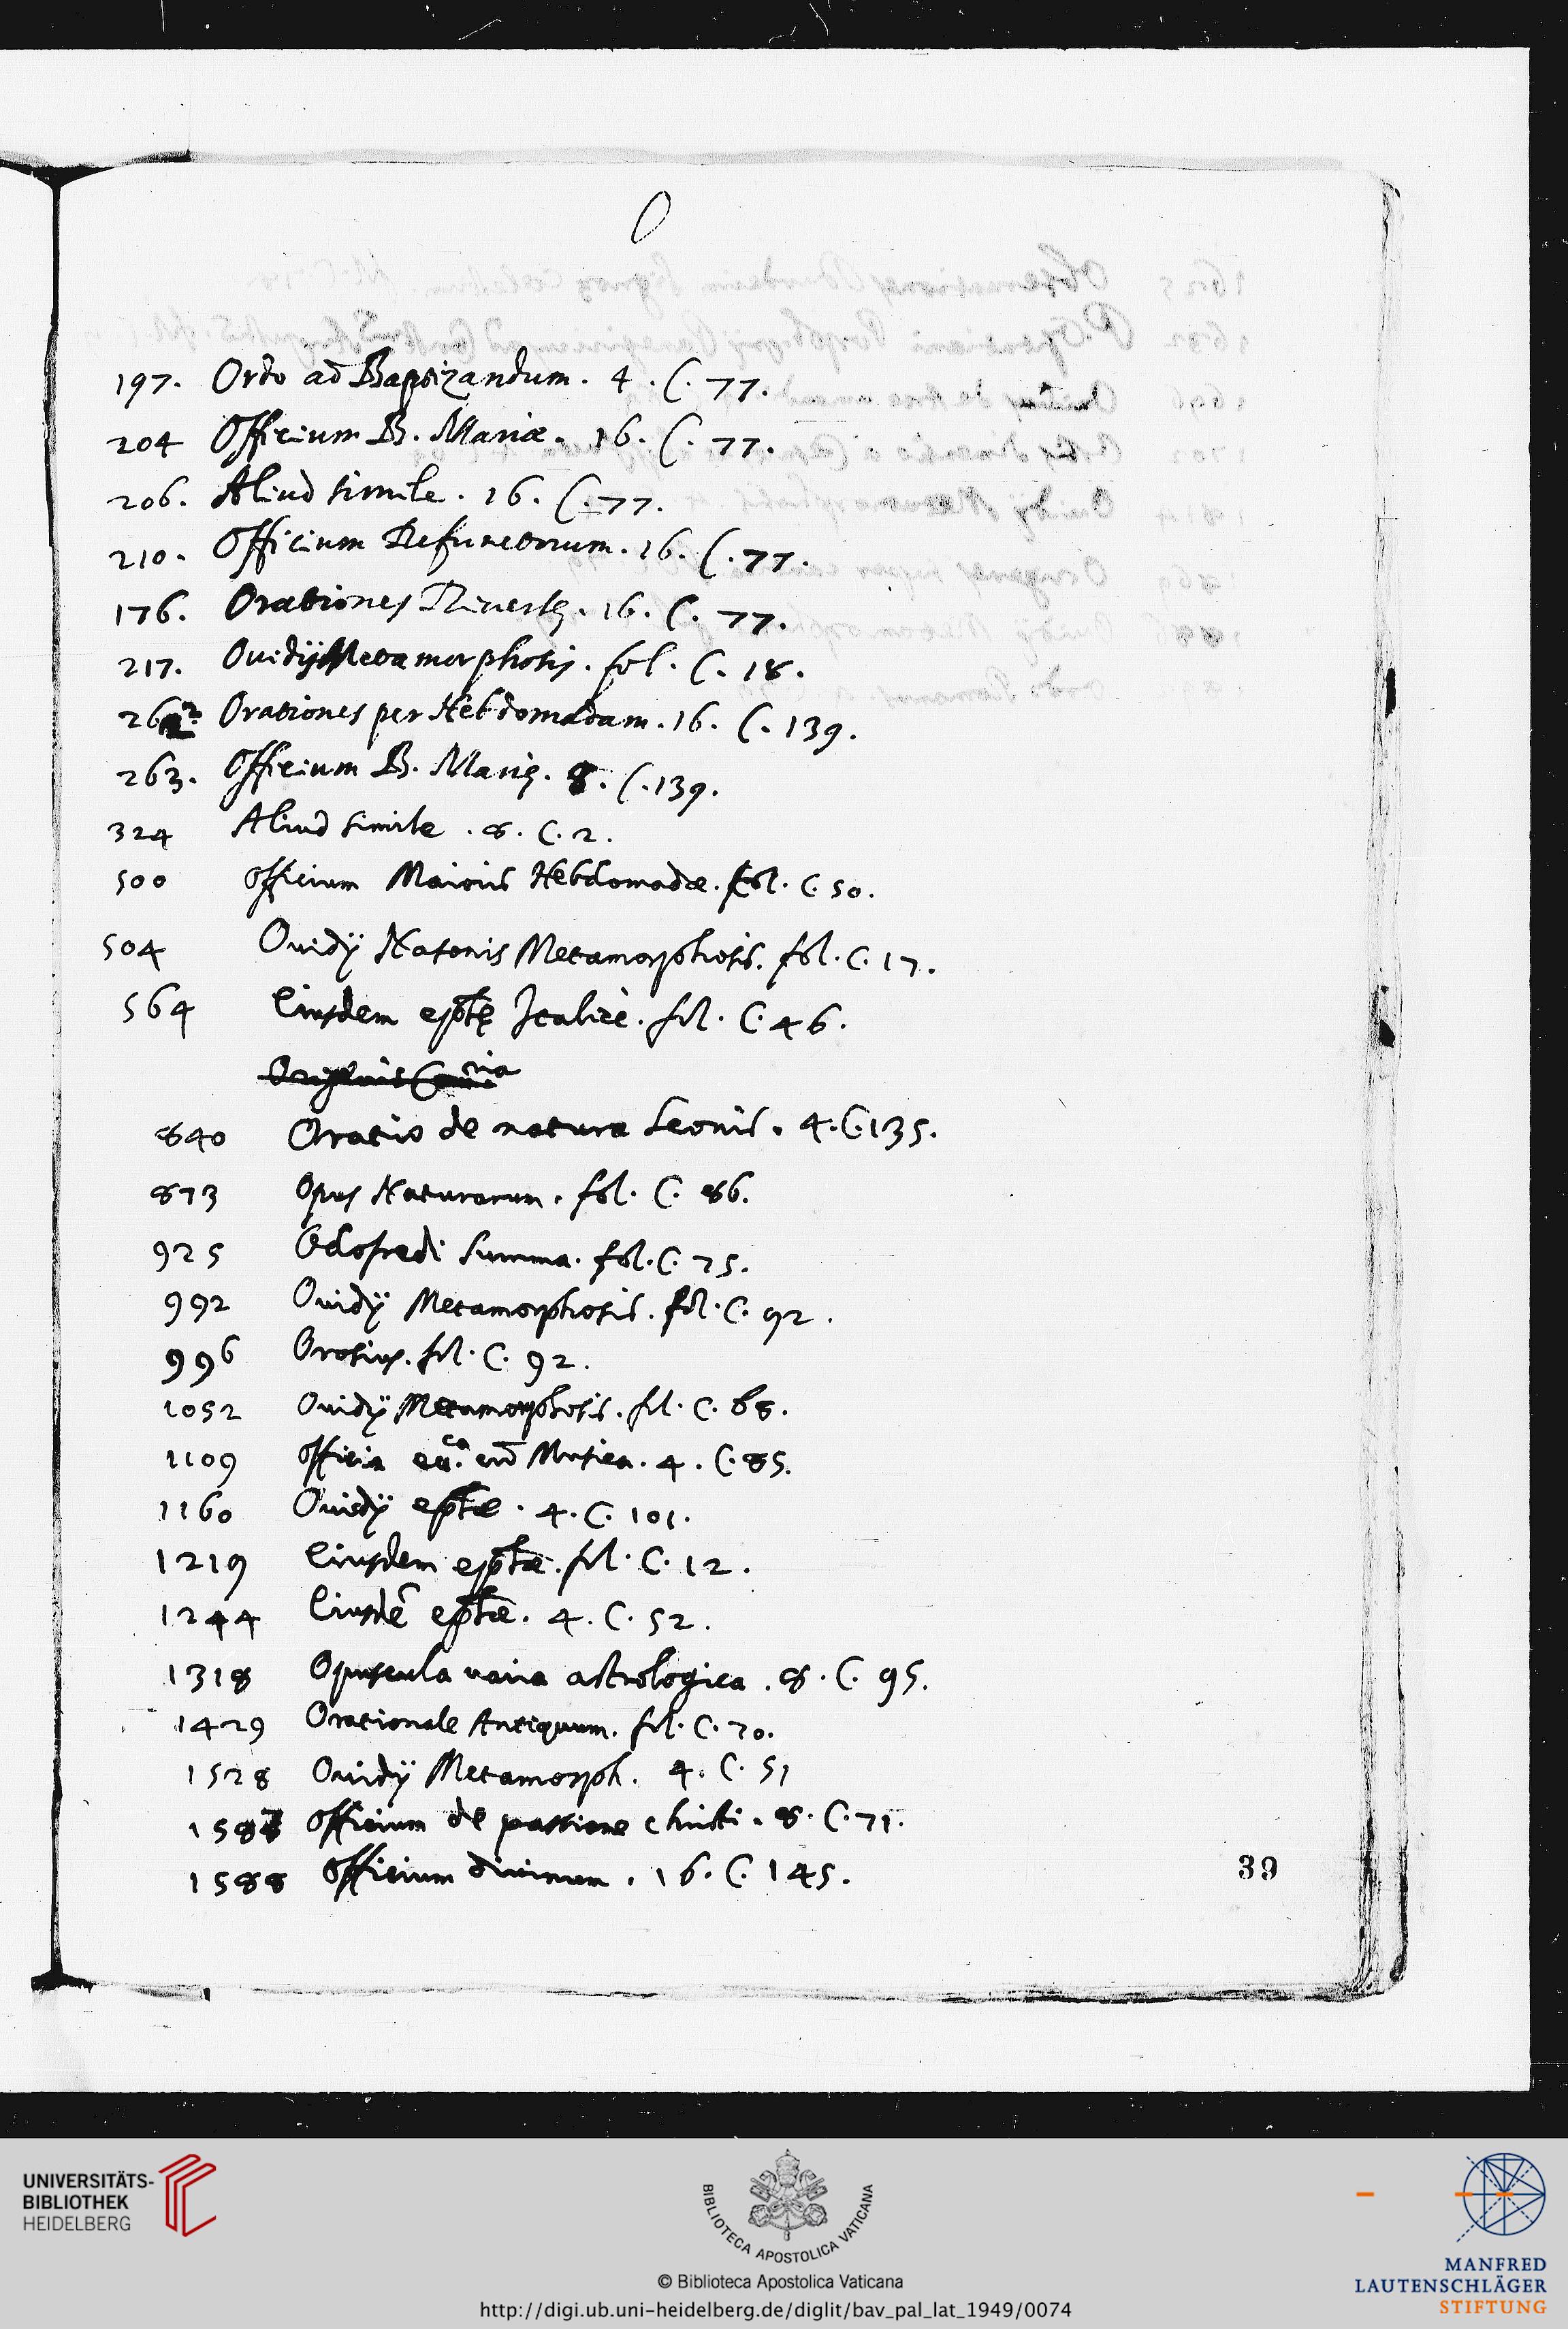 O
197. Ordo ad Baptizandum. 4. C. 77.
204 Officium B. Mariæ. 16. C. 77.
206. Aliud simile. 16. C. 77.
210. Officium Defunctorum. 16. C. 77.
176. Orationes Diversę. 16. C. 77.
217. Ovidij Metamorphosis. fol. C. 18.
262. Orationes per Hebdomadam. 16. C. 139.
263. Officium B. Marię. 8. C. 139.
324 Aliud simile. 8. C. 2.
500 Officium Maioris Hebdomadæ. fol. C. 50.
504 Ouidij Nasonis Metamorphosis. fol. C. 17.
564 Eiusdem epłę Italicè. fol. C. 46.
Origenis
840 Oratio de natura Leonis. 4. C. 135.
873 Opus Naturarum. fol. C. 86.
925 Odofredi Summa. fol. C. 75.
992 Ouidij Metamorphosis. fol. C. 92.
996 Orosius. fol. C. 92.
1052 Ouidij Metamorphosis. fol. C. 68.
1109 Officia cū Musica. 4. C. 85.
1160 Ouidij epłæ. 4. C. 101.
1219 Eiusdem epłæ. fol. C. 12.
1244 Eiusdē epłæ. 4. C. 52.
1318 Opuscula varia astrologica. 8. C. 95.
1429 Orationale Antiquum. fol. C. 70.
1528 Ouidij Metamorph. 4. C. 51
Officium de passione Christi. 8. C. 71.
1588 Officium diuinum. 16. C. 145.
39
UNIVERSITÄTS-
BIBLIOTHEK
HEIDELBERG
BIBLIOTECA APOSTOLICA VATICANA
© Biblioteca Apostolica Vaticana
http://digi.ub.uni-heidelberg.de/diglit/bav_pal_lat_1949/0074
MANFRED
LAUTENSCHLÄGER
STIFTUNG